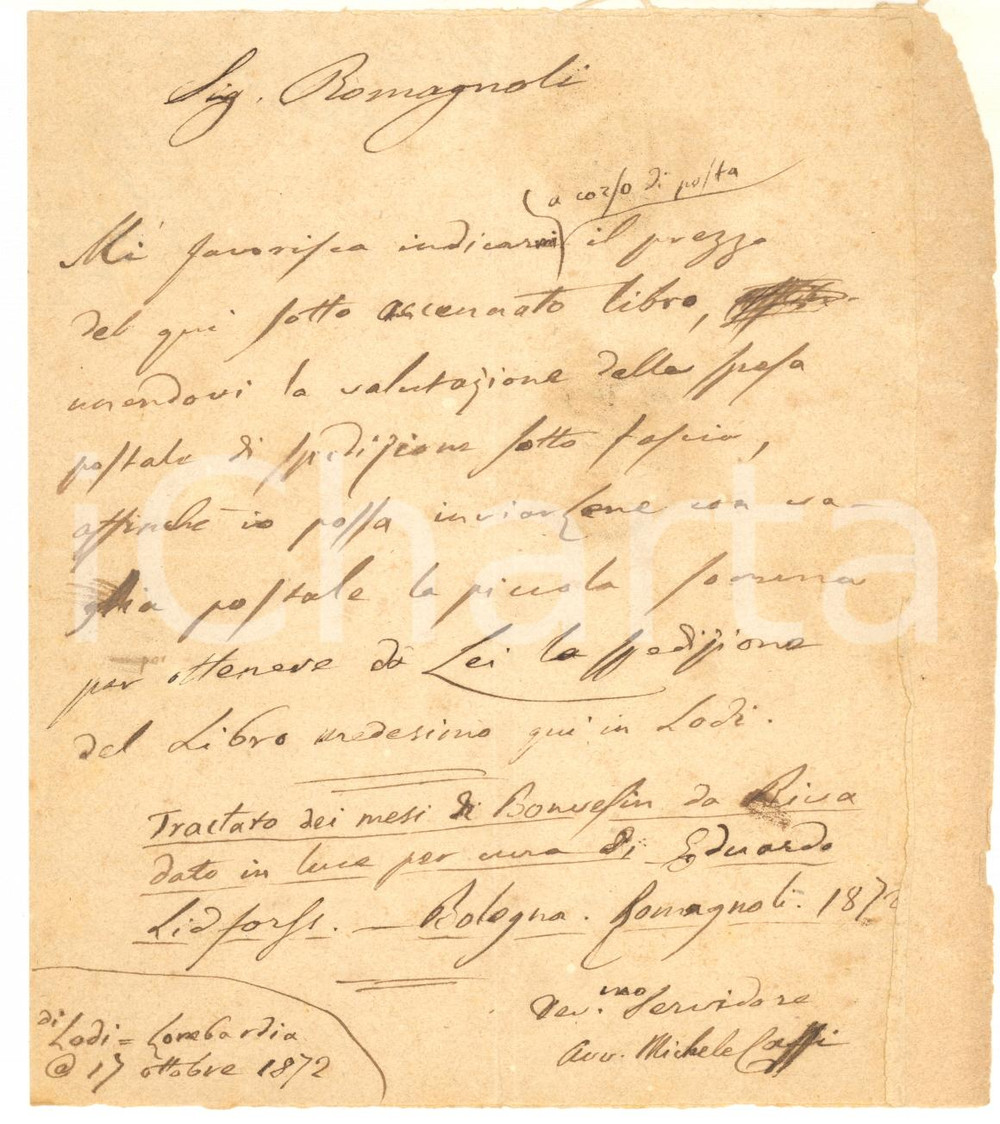 Sig. Romagnoli
a corso di posta
Mi favorisca indicarmi il prezzo
del qui sotto accennato libro,
unendovi la valutazione della spesa
postale di spedizione sotto fascia,
affinché io possa inviargliene con va-
glia postale la piccola somma
per ottenere da Lei la spedizione
del Libro medesimo qui in Lodi.
Tractato dei mesi di Bonvesin da Riva
dato in luce per cura di Eduardo
Lidforss. — Bologna. Romagnoli. 1872
Dev.mo Servidore
Avv. Michele Caffi
di Lodi = Lombardia
@ 17 ottobre 1872
iCharta